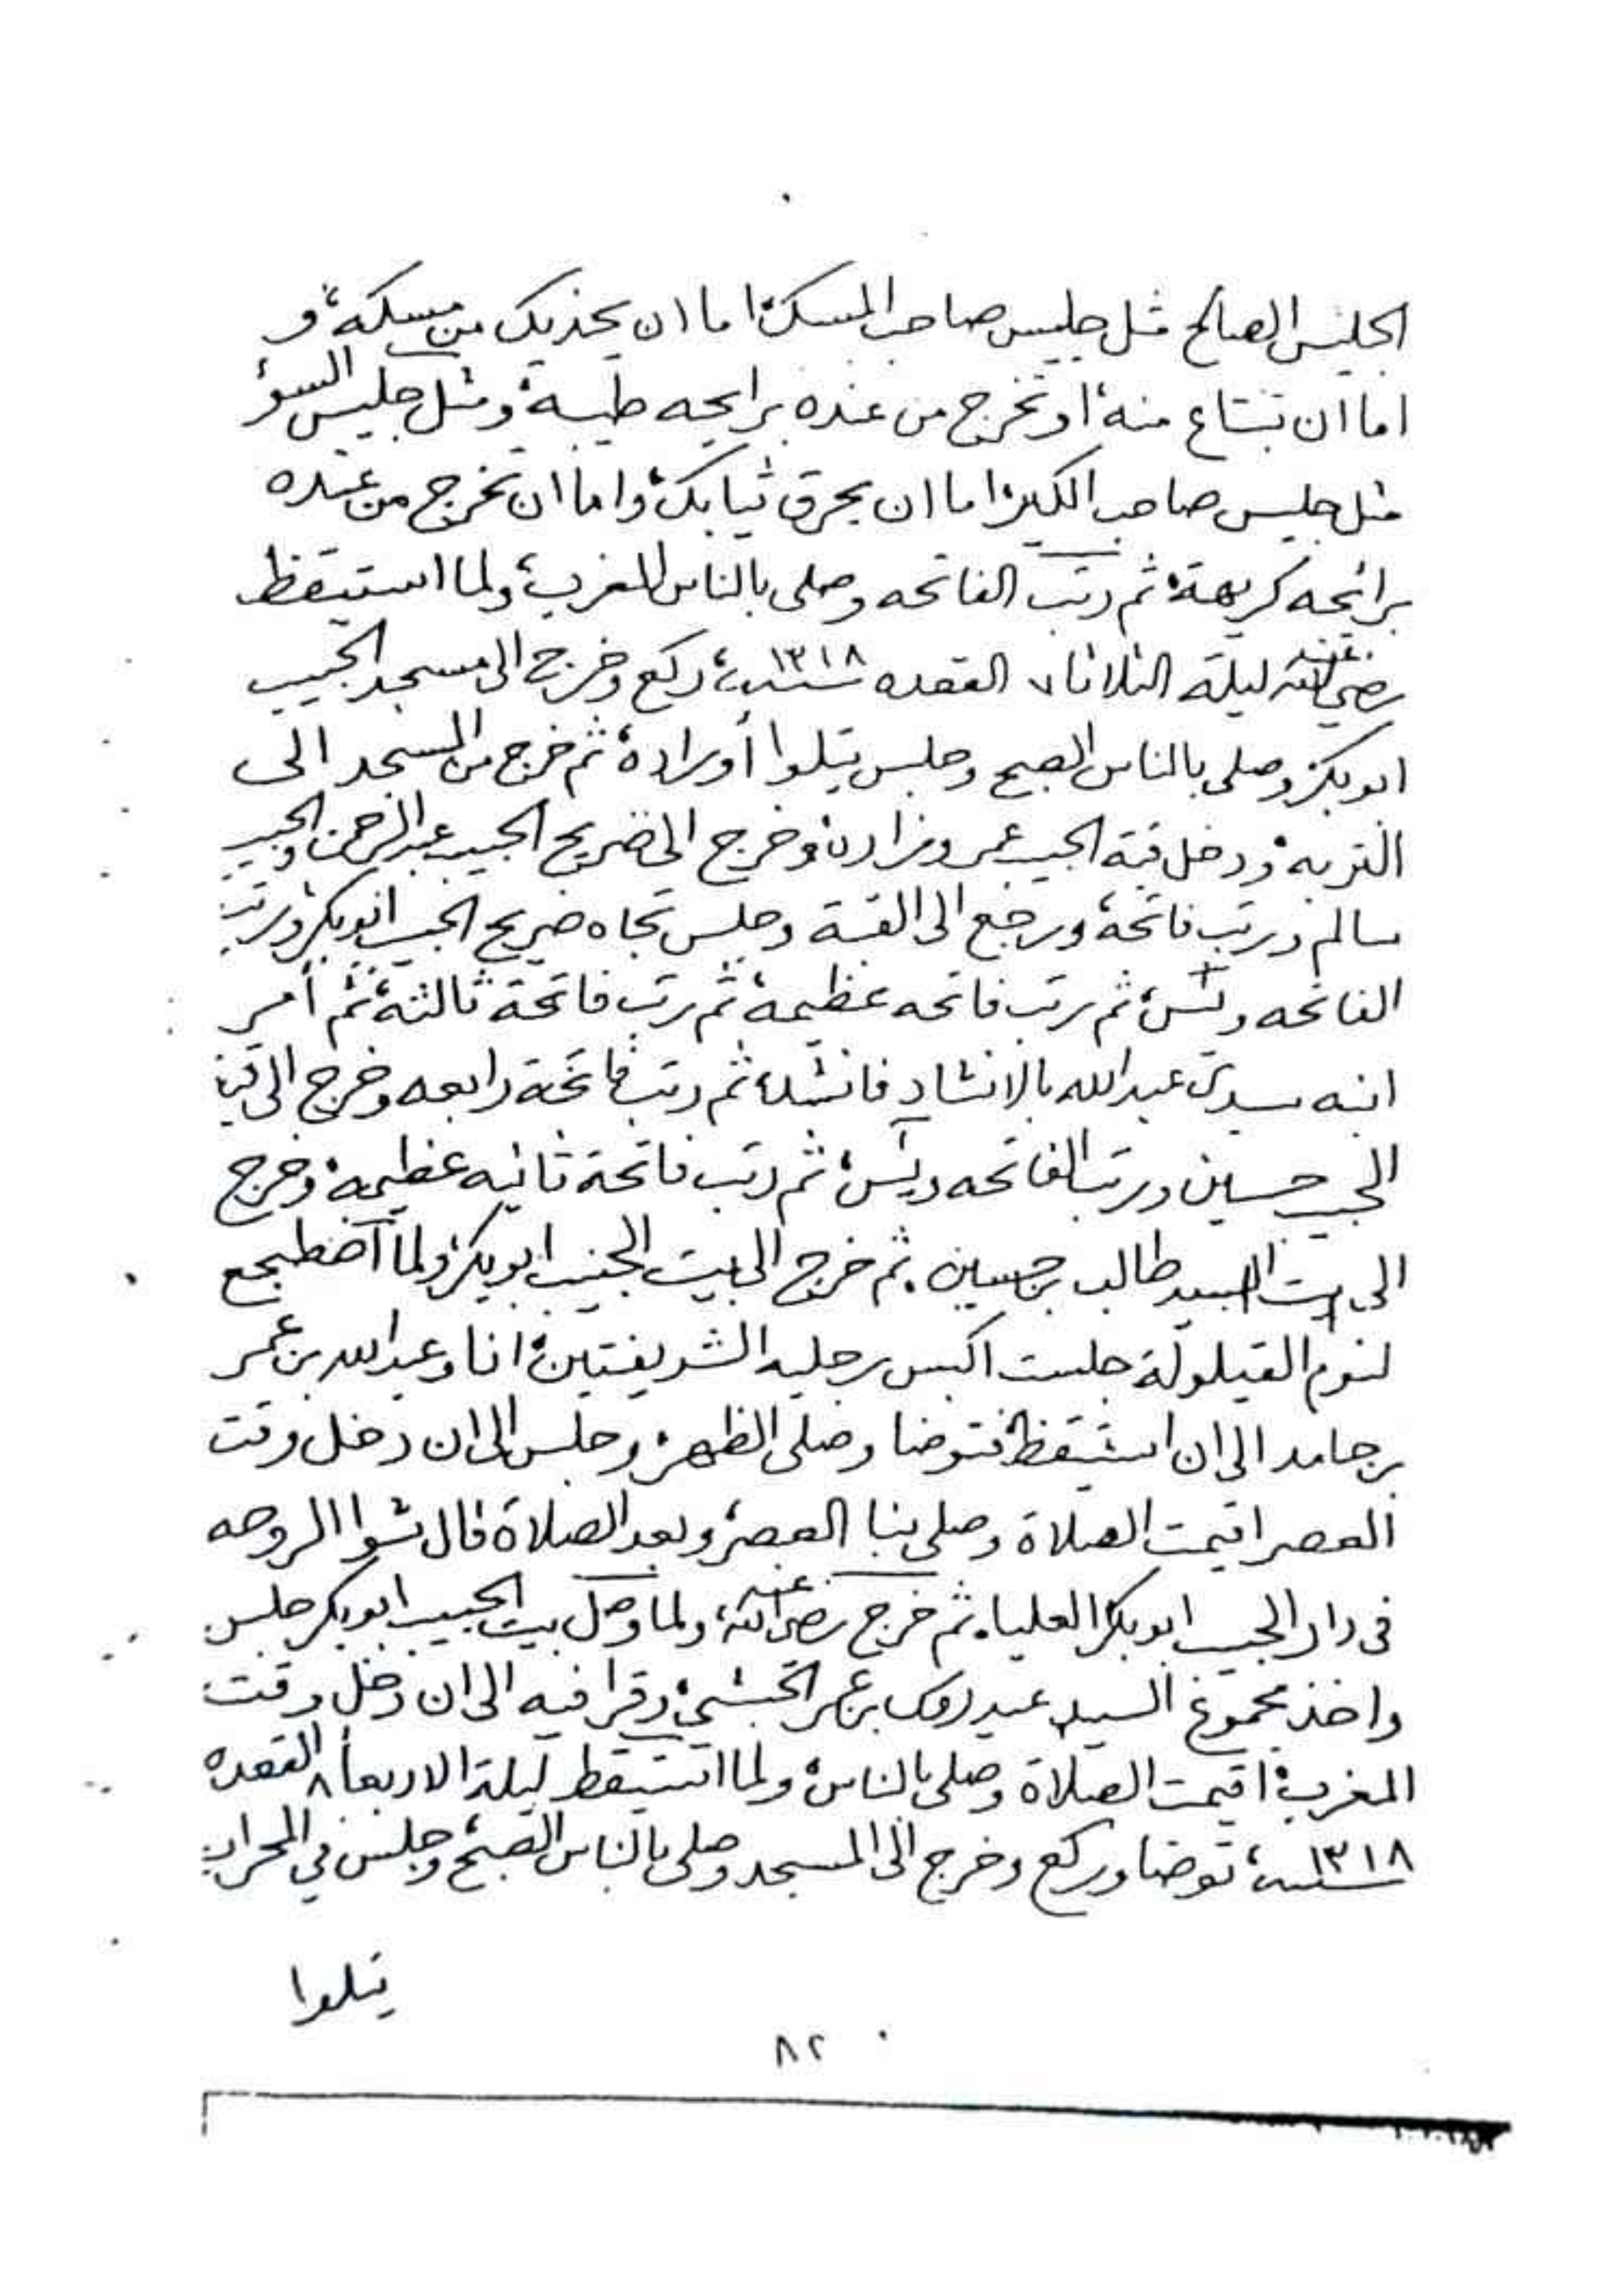 الجليس الصالح مثل جليس صاحب المسك، اما ان يحذيك من مسكه، و
اما ان تبتاع منه، او تخرج من عنده برايحه طيبه، ومثل جليس السوء
مثل جليس صاحب الكير، اما ان يحرق ثيابك، واما ان تخرج من عنده
برائحه كريهة، ثم رتب الفاتحه وصلى بالناس المغرب، ولما استيقظ
رضي الله عنه ليلة الثلاثا ٧ القعده سنة ١٣١٨، ركع وخرج الى مسجد الحبيب
ابوبكر وصلى بالناس الصبح وجلس يتلوا أوراده، ثم خرج من المسجد الى
التربه، ودخل قبة الحبيب عمر وزاره، وخرج الى ضريح الحبيب عبدالرحمن والحبيب
سالم ورتب فاتحه، ورجع الى القبة وجلس تجاه ضريح الحبيب ابوبكر، ورتب
الفاتحه ويس، ثم رتب فاتحه عظيمه، ثم رتب فاتحة ثالثه، ثم أمر
ابنه سيدي عبدالله بالانشاد فانشد، ثم رتب فاتحة رابعه وخرج الى قبة
الحبيب حسين ورتب الفاتحه ويس، ثم رتب فاتحة ثانيه عظيمه، وخرج
الى بيت السيد طالب بن حسين، ثم خرج الى بيت الحبيب ابوبكر، ولما اضطجع
لنوم القيلولة جلست اكبس رجليه الشريفتين، انا وعبدالله بن عمر
بن حامد الى ان استيقظ، فتوضا وصلى الظهر، وجلس الى ان دخل وقت
العصر اقيمت الصلاة وصلى بنا العصر، وبعد الصلاة قال شوا الروحه
في دار الحبيب ابوبكر العليا، ثم خرج رضي الله عنه، ولما وصل بيت الحبيب ابوبكر جلس
واخذ مجموع السيد عيدروس بن عمر الحبشي، وقرا فيه الى ان دخل وقت
المغرب، اقيمت الصلاة وصلى بالناس، ولما استيقظ ليلة الاربعا ٨ القعده
سنة ١٣١٨، توضا وركع وخرج الى المسجد وصلى بالناس الصبح، وجلس في المحراب
يتلوا
٨٢